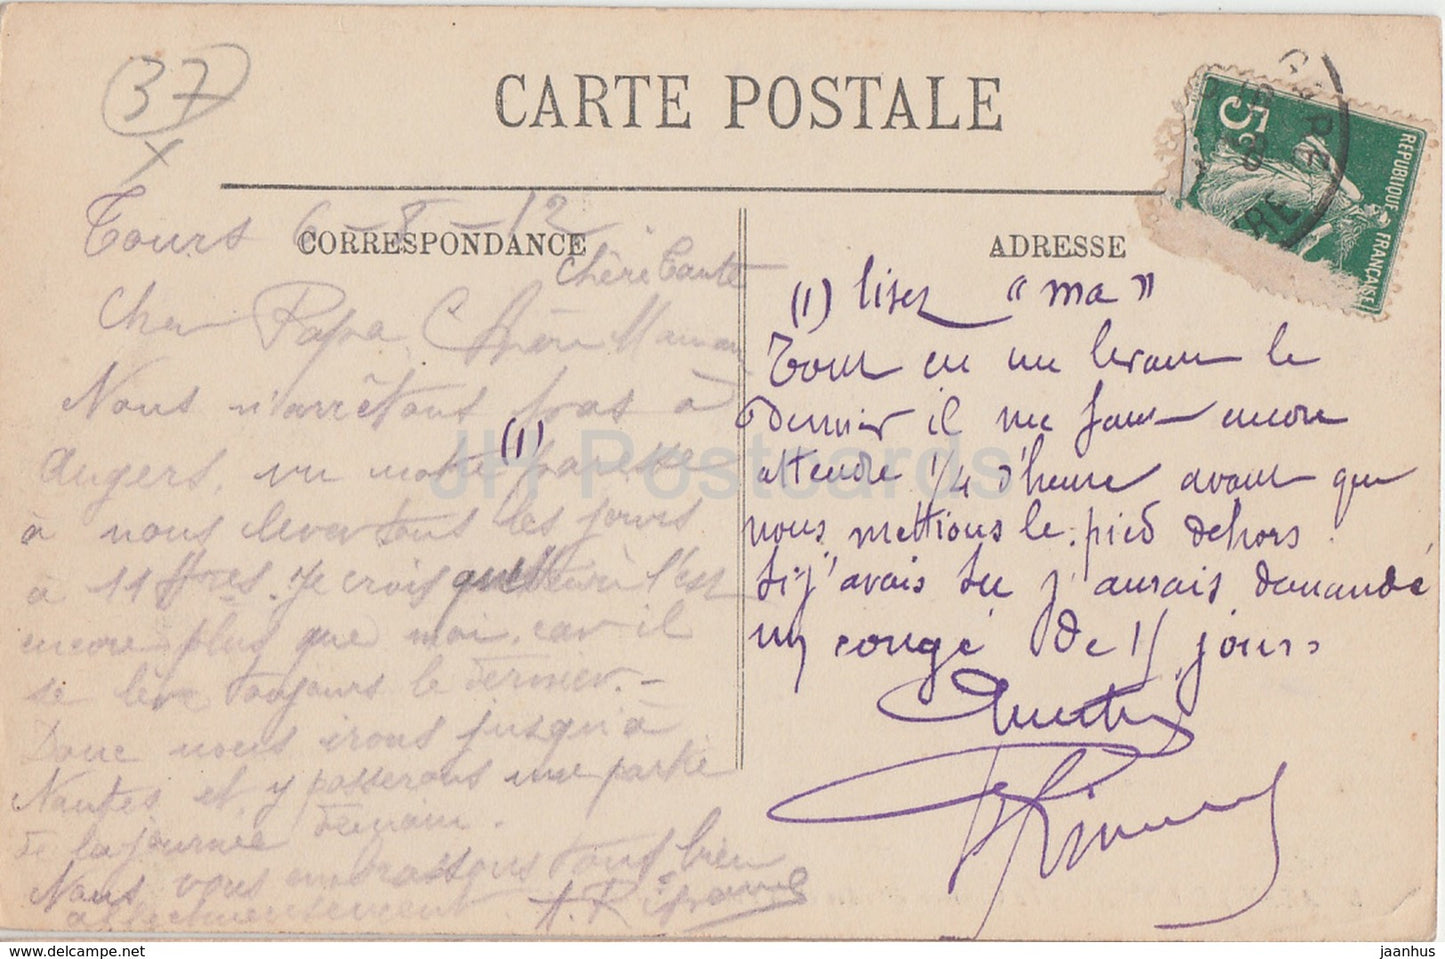 37
CARTE POSTALE
5c
REPUBLIQUE FRANÇAISE
CORRESPONDANCE
ADRESSE
Tours 6-8-12
Chère tante
Cher Papa, Chère Maman
Nous n'arrêtons pas à
Angers, vu notre (1) paresse
à nous lever tous les jours
à 11 Hres. Je crois que l'est
encore plus que moi, car il
se lève toujours le dernier. -
Donc nous irons jusqu'à
Nantes et y passerons une partie
de la journée demain.
Nous vous embrassons tous bien
affectueusement
(1) lisez "ma"
Tout en me levant le
dernier il me faut encore
attendre 1/4 d'heure avant que
nous mettions le pied dehors.
Si j'avais su j'aurais demandé
un congé de 15 jours
JH Postcards
www.delcampe.net
jaanhus